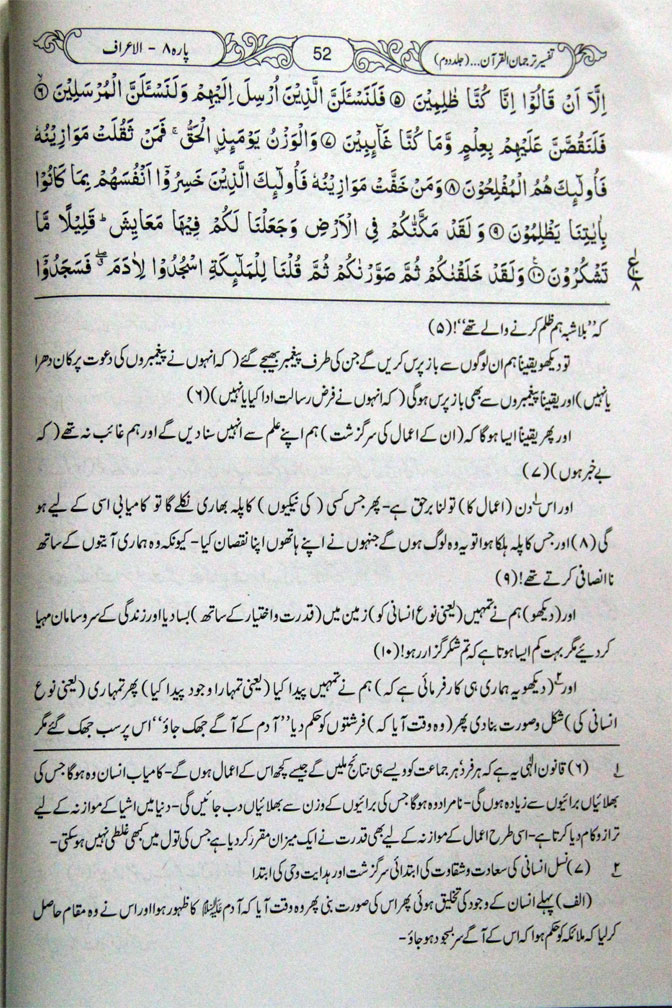 تفسیر ترجمان القرآن...(جلد دوم)
52
پارہ ۸ - الاعراف
اِلَّاۤ اَنْ قَالُوْۤا اِنَّا كُنَّا ظٰلِمِيْنَ ۝۵ فَلَنَسْـَٔلَنَّ الَّذِيْنَ اُرْسِلَ اِلَيْهِمْ وَلَنَسْـَٔلَنَّ الْمُرْسَلِيْنَ ۝۶
فَلَنَقُصَّنَّ عَلَيْهِمْ بِعِلْمٍ وَّمَا كُنَّا غَآىِٕبِيْنَ ۝۷ وَالْوَزْنُ يَوْمَىِٕذِ ۨالْحَقُّ ۚ فَمَنْ ثَقُلَتْ مَوَازِيْنُهٗ
فَاُولٰٓىِٕكَ هُمُ الْمُفْلِحُوْنَ ۝۸ وَمَنْ خَفَّتْ مَوَازِيْنُهٗ فَاُولٰٓىِٕكَ الَّذِيْنَ خَسِرُوْۤا اَنْفُسَهُمْ بِمَا كَانُوْا
بِاٰيٰتِنَا يَظْلِمُوْنَ ۝۹ وَلَقَدْ مَكَّنّٰكُمْ فِي الْاَرْضِ وَجَعَلْنَا لَكُمْ فِيْهَا مَعَايِشَ ؕ قَلِيْلًا مَّا
تَشْكُرُوْنَ ۝۱۰ وَلَقَدْ خَلَقْنٰكُمْ ثُمَّ صَوَّرْنٰكُمْ ثُمَّ قُلْنَا لِلْمَلٰٓىِٕكَةِ اسْجُدُوْا لِاٰدَمَ ۖ فَسَجَدُوْۤا
ع ۸
کہ ’’بلاشبہ ہم ظلم کرنے والے تھے‘‘! (۵)
تو دیکھو یقیناً ہم ان لوگوں سے باز پرس کریں گے جن کی طرف پیغمبر بھیجے گئے (کہ انہوں نے پیغمبروں کی دعوت پر کان دھرا
یا نہیں) اور یقیناً پیغمبروں سے بھی باز پرس ہو گی (کہ انہوں نے فرض رسالت ادا کیا یا نہیں) (۶)
اور پھر یقیناً ایسا ہو گا کہ (ان کے اعمال کی سرگزشت) ہم اپنے علم سے انہیں سنا دیں گے اور ہم غائب نہ تھے (کہ
بے خبر ہوں) (۷)
اور اس۱ دن (اعمال کا) تولنا برحق ہے- پھر جس کسی (کی نیکیوں) کا پلہ بھاری نکلے گا تو کامیابی اسی کے لیے ہو
گی (۸) اور جس کا پلہ ہلکا ہوا تو یہ وہ لوگ ہوں گے جنہوں نے اپنے ہاتھوں اپنا نقصان کیا- کیونکہ وہ ہماری آیتوں کے ساتھ
نا انصافی کرتے تھے! (۹)
اور (دیکھو) ہم نے تمہیں (یعنی نوع انسانی کو) زمین میں (قدرت و اختیار کے ساتھ) بسا دیا اور زندگی کے سروسامان مہیا
کر دیئے مگر بہت کم ایسا ہوتا ہے کہ تم شکر گزار رہو! (۱۰)
اور۲ (دیکھو یہ ہماری ہی کارفرمائی ہے کہ) ہم نے تمہیں پیدا کیا (یعنی تمہارا وجود پیدا کیا) پھر تمہاری (یعنی نوع
انسانی کی) شکل و صورت بنا دی پھر (وہ وقت آیا کہ) فرشتوں کو حکم دیا ’’آدم کے آگے جھک جاؤ‘‘ اس پر سب جھک گئے مگر
۱ (۶) قانون الٰہی یہ ہے کہ ہر فرد ہر جماعت کو ویسے ہی نتائج ملیں گے جیسے کچھ اس کے اعمال ہوں گے- کامیاب انسان وہ ہو گا جس کی
بھلائیاں برائیوں سے زیادہ ہوں گی- نامراد وہ ہو گا جس کی برائیوں کے وزن سے بھلائیاں دب جائیں گی- دنیا میں اشیا کے موازنہ کے لیے
ترازو کام دیا کرتا ہے- اسی طرح اعمال کے موازنہ کے لیے بھی قدرت نے ایک میزان مقرر کر دیا ہے جس کی تول میں کبھی غلطی نہیں ہو سکتی-
۲ (۷) نسل انسانی کی سعادت و شقاوت کی ابتدائی سرگزشت اور ہدایت وحی کی ابتدا
(الف) پہلے انسان کے وجود کی تخلیق ہوئی پھر اس کی صورت بنی پھر وہ وقت آیا کہ آدم علیہ السلام کا ظہور ہوا اور اس نے وہ مقام حاصل
کر لیا کہ ملائکہ کو حکم ہوا کہ اس کے آگے سر بسجود ہو جاؤ-